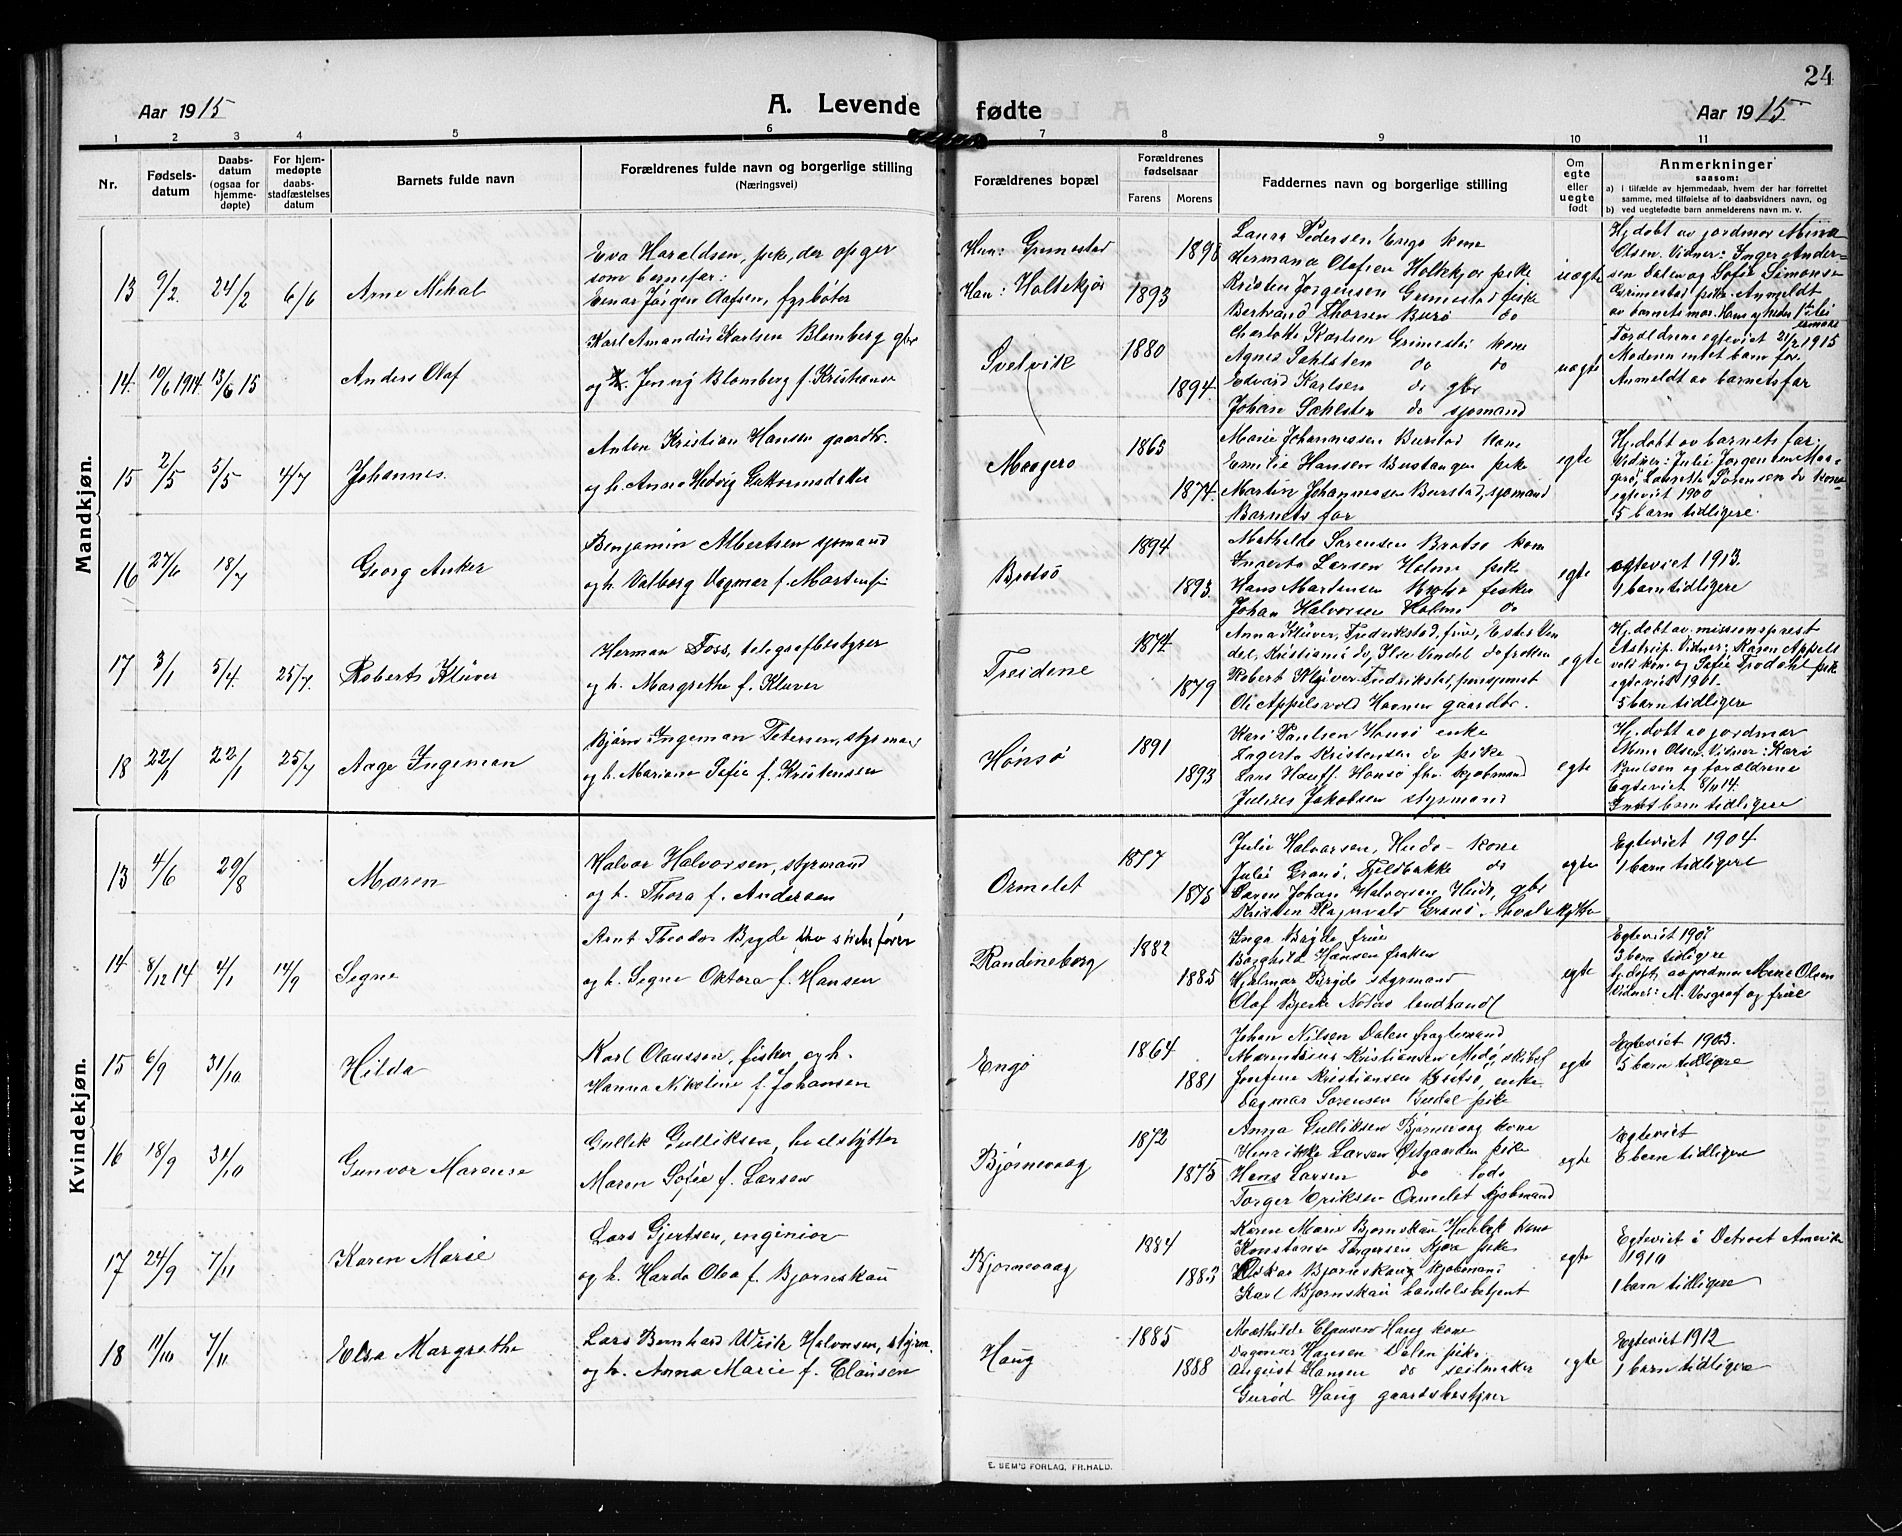 24
Aar 1915
A. Levende fødte
Aar 1915
1 2 3 4 5 6 7 8 9 10 11
Nr.
Fødsels-
datum
Daabs-
datum
(ogsaa for
hjemme-
døpte)
For hjem-
medøpte
daabs-
stadfæstelses
datum
Barnets fulde navn
Forældrenes fulde navn og borgerlige stilling
(Næringsvei)
Forældrenes bopæl
Forældrenes
fødselsaar
Farens Morens
Faddernes navn og borgerlige stilling
Om
egte
eller
uegte
født
Anmerkninger
saasom:
a) i tilfælde av hjemmedaab, hvem der har forrettet
samme, med tilføielse af to daabsvidners navn, og
b) ved uegtefødte barn anmelderens navn m. v.
Mandkjøn.
13 9/2. 24/2 6/6 Arne Mikal
Eva Haraldsen, pike, der opger
som barnefar:
Einar Jörgen Olafsen, fyrbøter
Hun: Grimestad
Han: Holtekjær
1893
Laura Pedersen Engø kone
Hermana Olafsen Holtekjær pike
Kristen Jørgensen Grimestad fisker
Bertrand Thorsen Burø do
uegte
Hj. døbt av jordmor Mina
Olsen. Vidner: Inger Ander-
sen Dalen og Sofie Simonsen
Grimestad pike. Anmeldt
av barnets mor.
14 10/6 1914 13/6 15 Anders Olaf
Karl Amandus Karlsen Blomberg gbr
og h. Jenny Blomberg f. Kristianse
Svelvik
1880
1894
Charlotte Karlsen Grimestad kone
Agnes Sahlsten do do
Edvard Karlsen do gbr
Johan Sahlsten do sjømand
uegte
Forældrene egteviet 21/2 1915
Moderen intet barn før.
Anmeldt av barnets far
15 2/5 5/5 4/7 Johannes.
Anton Kristian Hansen gaardbr.
og h. Anna Hedvig Gulbrandsdatter
Maagerø
1865
1874
Marie Johannessen Burstad kone
Emilie Hansen Bustangen pike
Martin Johannessen Burstad, sjømand
Barnets far
egte
Hj. døbt av barnets far.
Vidner: Julie Jørgensen Maa-
gerø, Laurette Sørensen do kone
egteviet 1900
5 barn tidligere.
16 27/6 18/7 Georg Anker
Benjamin Albertsen sjømand
og h. Valborg Dagmar f. Martens
Brøtsø
1894
1893
Mathilde Sørensen Brøtsø kone
Ingerta Larsen Holme pike
Hans Martinsen Brøtsø fisker
Johan Halvorsen Holme do
egte
egteviet 1913.
1 barn tidligere
17 3/1 5/4. 25/7. Roberts Klüver
Herman Foss, telegrafbestyrer
og h. Margrethe f. Klüver
Treidene
1874
1879
Anna Klüver, Fredrikstad, frue, Ester Vin-
del, Kristiania do, Else Vindel do frøken
Robert Klüver Fredrikstad, pensjonist
Ole Appelsvold Havnen gaardbr.
egte
Hj. døbt av missionsprest
Astrup. Vidner: Karen Appels
vold kone og Sofie Trodahl pike
egteviet 1901.
5 barn tidligere
18 22/1 22/1 25/7 Aage Ingeman
Bjørn Ingeman Petersen, styrmand
og h. Mariane Sofie f. Kristensen
Hønsø
1891
1893
Kari Paulsen Hønsø enke
Lagerta Kristensen do pike
Lars Hauff Hønsø fhv. kjøbmand
Julius Jakobsen styrmand
egte
Hj. døbt av jordmor
Mina Olsen. Vidner: Karo
Paulsen og forældrene
Egteviet 8/11 14.
Intet barn tidligere
Kvindekjøn.
13 4/6 29/8 Maren
Halvor Halvorsen, styrmand
og h. Thora f. Andersen
Ormelet
1877
1875
Julie Halvorsen, Hudø kone
Julie Granø, Fjeldbakke do
Søren Johan Halvorsen, Hudø, gbr
Kristen Ragnvald Granø, hvalskytter
egte
Egteviet 1904
1 barn tidligere
14 8/12 14 4/1 14/9 Segne
Arnt Theodor Bryde skibsfører
og h. Segne Oktora f. Hansen
Randineborg
1882
1885
Inga Bryde frue
Borghild Hansen frøken
Hjalmar Bryde styrmand
Olaf Bjerke Nøtterø landhandl
egte
Egteviet 1907
3 barn tidligere
hj. døpt av jordmor Mina Olsen
Vidner: M. Vosgraf og frue
15 6/9 31/10 Hilda
Karl Olaussen, fisker og h.
Hanna Nikoline f. Johansen
Engø
1864
1881
Johan Nilsen Dalen fragtemand
Marendius Kristiansen Medø, skibsf
Josefine Kristiansen Brøtsø, enke
Dagmar Sørensen Budal pike
egte
Egteviet 1903.
5 barn tidligere
16 18/9 31/10 Gunvor Marense
Gullik Gulliksen, hvalskytter
Maren Sofie f. Larsen
Bjørnevaag
1872
1875
Anna Gulliksen Bjørnevaag kone
Henrikke Larsen Østgaarden pike
Hans Larsen do lods
Torger Eriksen Ormelet kjøbmand
egte
Egteviet
6 barn tidligere
17 24/9 7/11 Karen Marie
Lars Gjertsen, enginiør
og h. Harda Olea f. Bjørneskau
Bjørnevaag
1884
1883
Karen Marie Bjørnskau Hulebak kone
Konstanse Torgersen Kjøre pike
Oskar Bjørneskau kjøbmand
Karl Bjørnskau handelsbetjent
egte
Egteviet i Detroit Amerika
1910
1 barn tidligere
18 11/10 7/11 Elsa Margrethe
Lars Bernhard Wiik Halvorsen, styrm.
og h. Anna Marie f. Clausen
Haug
1885
1888
Mathilde Clausen Haug kone
Dagmar Hansen Dalen pike
August Hansen do seilmaker
Gurod Haug gaardsbestyrer
egte
Egteviet 1912
1 barn tidligere
E. SEM'S FORLAG, FR.HALD.